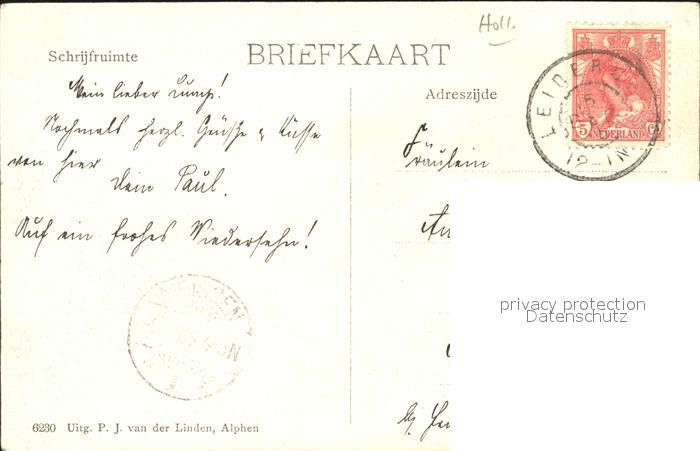 Holl.
Schrijfruimte
BRIEFKAART
Adreszijde
Mein lieber Lump!
Nochmals herzl. Grüße & Küsse
von hier
Dein Paul.
Auf ein frohes Wiedersehn!
Fräulein
NEDERLAND
5
12-1N
privacy protection
Datenschutz
6230 Uitg. P. J. van der Linden, Alphen